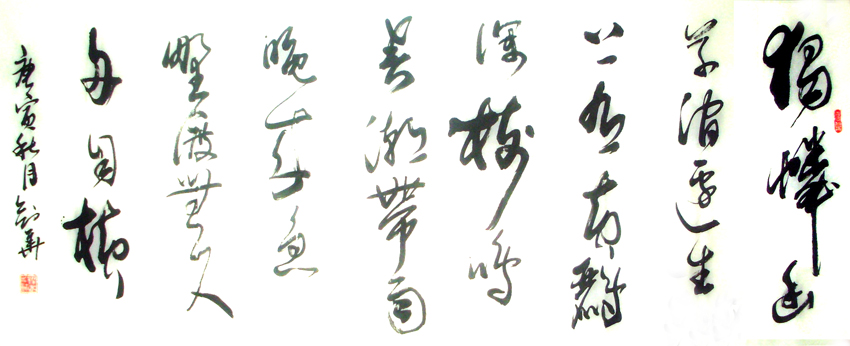 獨憐幽
草澗邊生
上有黄鸝
深樹鳴
春潮帶雨
晚來急
野渡無人
舟自橫
庚寅秋月劍華